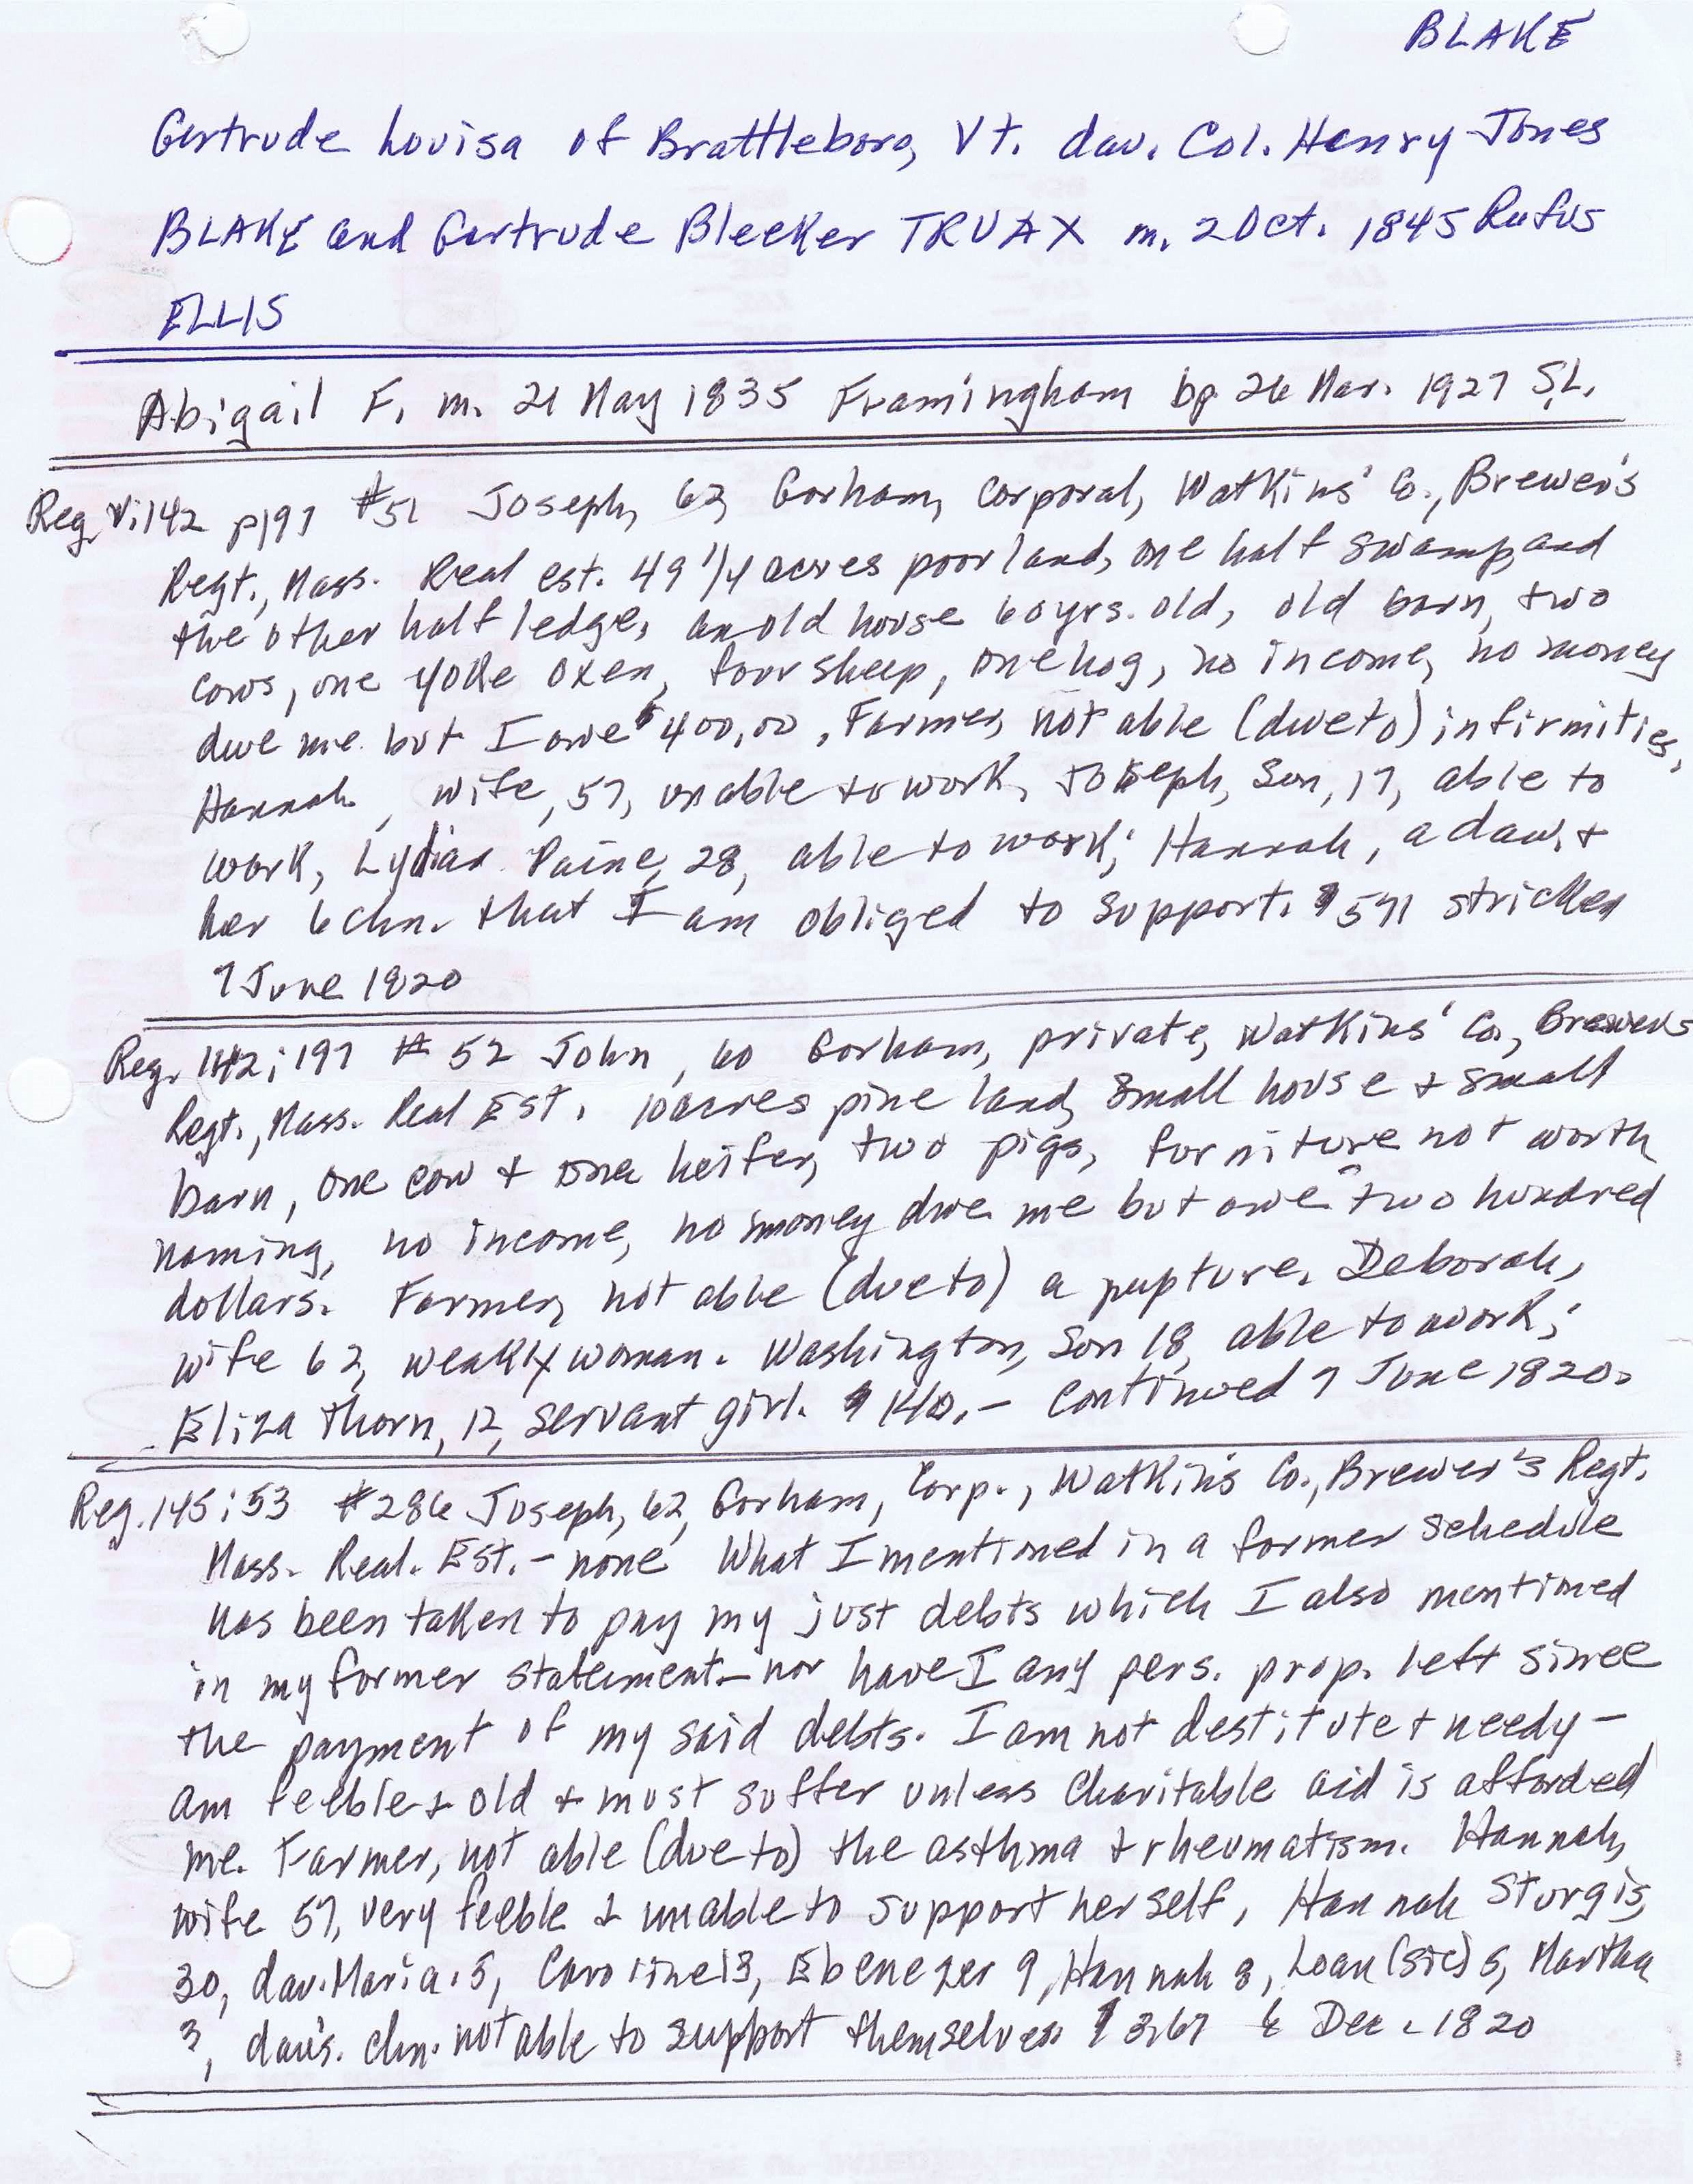 BLAKE
Gertrude Lovisa of Brattleboro, Vt. dau. Col. Henry Jones
BLAKE and Gertrude Bleeker TRUAX m. 2 Oct. 1845 Rufus
ELLIS
Abigail F. m. 21 May 1835 Framingham bp 26 Mar. 1927 S.L.
Reg. V:142 p197 #51 Joseph, 62, Gorham, Corporal, Watkins' Co., Brewer's
Regt., Mass. Real est. 49 1/4 acres poor land, one half swamp, and
the other half ledge, an old house 60 yrs. old, old barn, two
cows, one yoke oxen, four sheep, one hog, no income, no money
due me but I owe $400.00. Farmer, not able (due to) infirmities,
Hannah, wife, 57, unable to work, Joseph, Son, 17, able to
work, Lydia Paine, 28, able to work; Hannah, a dau. +
her 6 chn. that I am obliged to support. $571 stricken
7 June 1820
Reg. 142:197 #52 John, 60 Gorham, private, Watkins' Co., Brewers
Regt., Mass. Real Est. 10 acres pine land, small house + small
barn, one cow + one heifer, two pigs, furniture not worth
naming, no income, no money due me but owe two hundred
dollars. Farmer, not able (due to) a rupture. Deborah,
wife 62, weakly woman. Washington, Son 18, able to work;
Eliza Thorn, 12, servant girl. $140.- Continued 7 June 1820.
Reg. 145:53 #286 Joseph, 62, Gorham, Corp., Watkin's Co., Brewer's Regt.
Mass. Real. Est. - none What I mentioned in a former schedule
has been taken to pay my just debts which I also mentioned
in my former statement - nor have I any pers. prop. left since
the payment of my said debts. I am not destitute + needy -
am feeble + old + must suffer unless charitable aid is afforded
me. Farmer, not able (due to) the asthma + rheumatism. Hannah,
wife 57, very feeble & unable to support herself, Hannah Sturgis,
30, dau. Maria 15, Caroline 13, Ebenezer 9, Hannah 8, Loan (sic) 5, Martha
3, dau's. chn. not able to support themselves $3.67 6 Dec. 1820